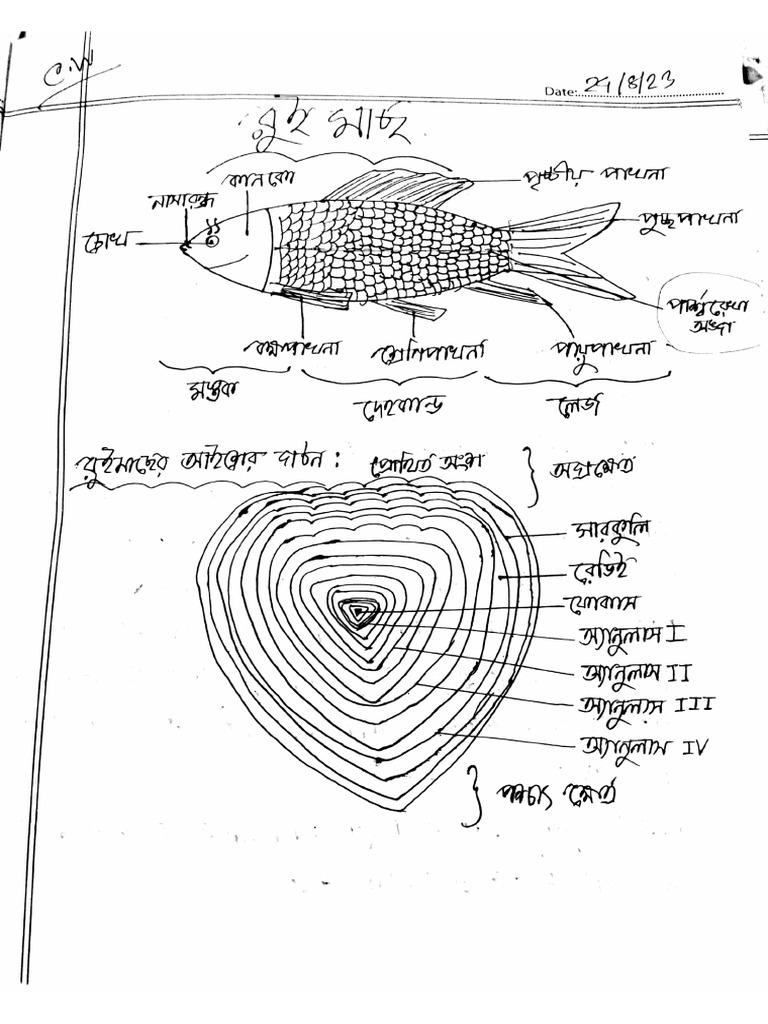 C.W
Date: 24/8/23
রুই মাছ
কানকো
নাসারন্ধ্র
চোখ
পৃষ্ঠীয় পাখনা
পুচ্ছপাখনা
পার্শ্বরেখা
অঙ্গ
বক্ষপাখনা
শ্রোণিপাখনা
পায়ুপাখনা
মস্তক
দেহকান্ড
লেজ
রুইমাছের আইশের গঠন:
প্রোথিত অংশ
অগ্রক্ষেত্র
সারকুলি
রেডিই
ফোকাস
অ্যানুলাস I
অ্যানুলাস II
অ্যানুলাস III
অ্যানুলাস IV
পশ্চাৎ ক্ষেত্র